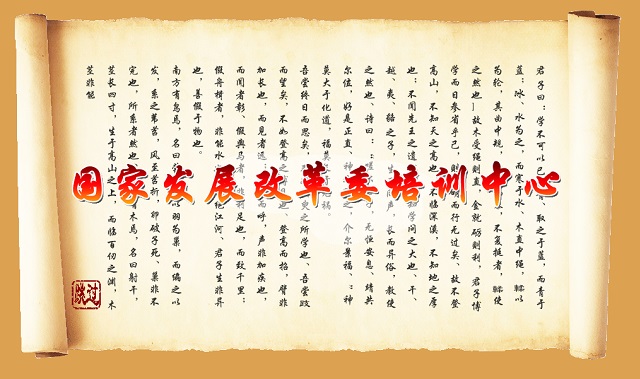 国家发展改革委培训中心
君子曰:学不可以已 取之于蓝,而青于
蓝;冰、水为之,而寒于水、木直中绳,以
为轮,其曲中规, 不复挺者,使
之然也、故木受绳则直,金就砺则利,君子博
学而日参省乎己,则 明而行无过矣、故不登
高山,不知天之高也,不临深溪,不知地之厚
也;不闻先王之遗 知学问之大也、干、
越、夷、貉之子,生 声,长而异俗,教使
之然也、诗曰::嗟尔 ,无恒安息、靖共
尔位,好是正直、神 之,介尔景福、:神
莫大于化道,福莫 祸、
吾尝终日而思矣, 臾之所学也、吾尝跂
而望矣,不如登高之 见也、登高而招,臂非
加长也,而见者远 而呼,声非加疾也,
而闻者彰、假舆马者,非利足也,而致千里;
假舟楫者,非能水 绝江河、君子生非异
也,善假于物也。
南方有鸟焉,名曰 以羽为巢,而编之以
发,系之苇苕,风至苕折,卵破子死、巢非不
完也,所系者然也 木焉,名曰射干,
茎长四寸,生于高山之上,而临百仞之渊,木
茎非能